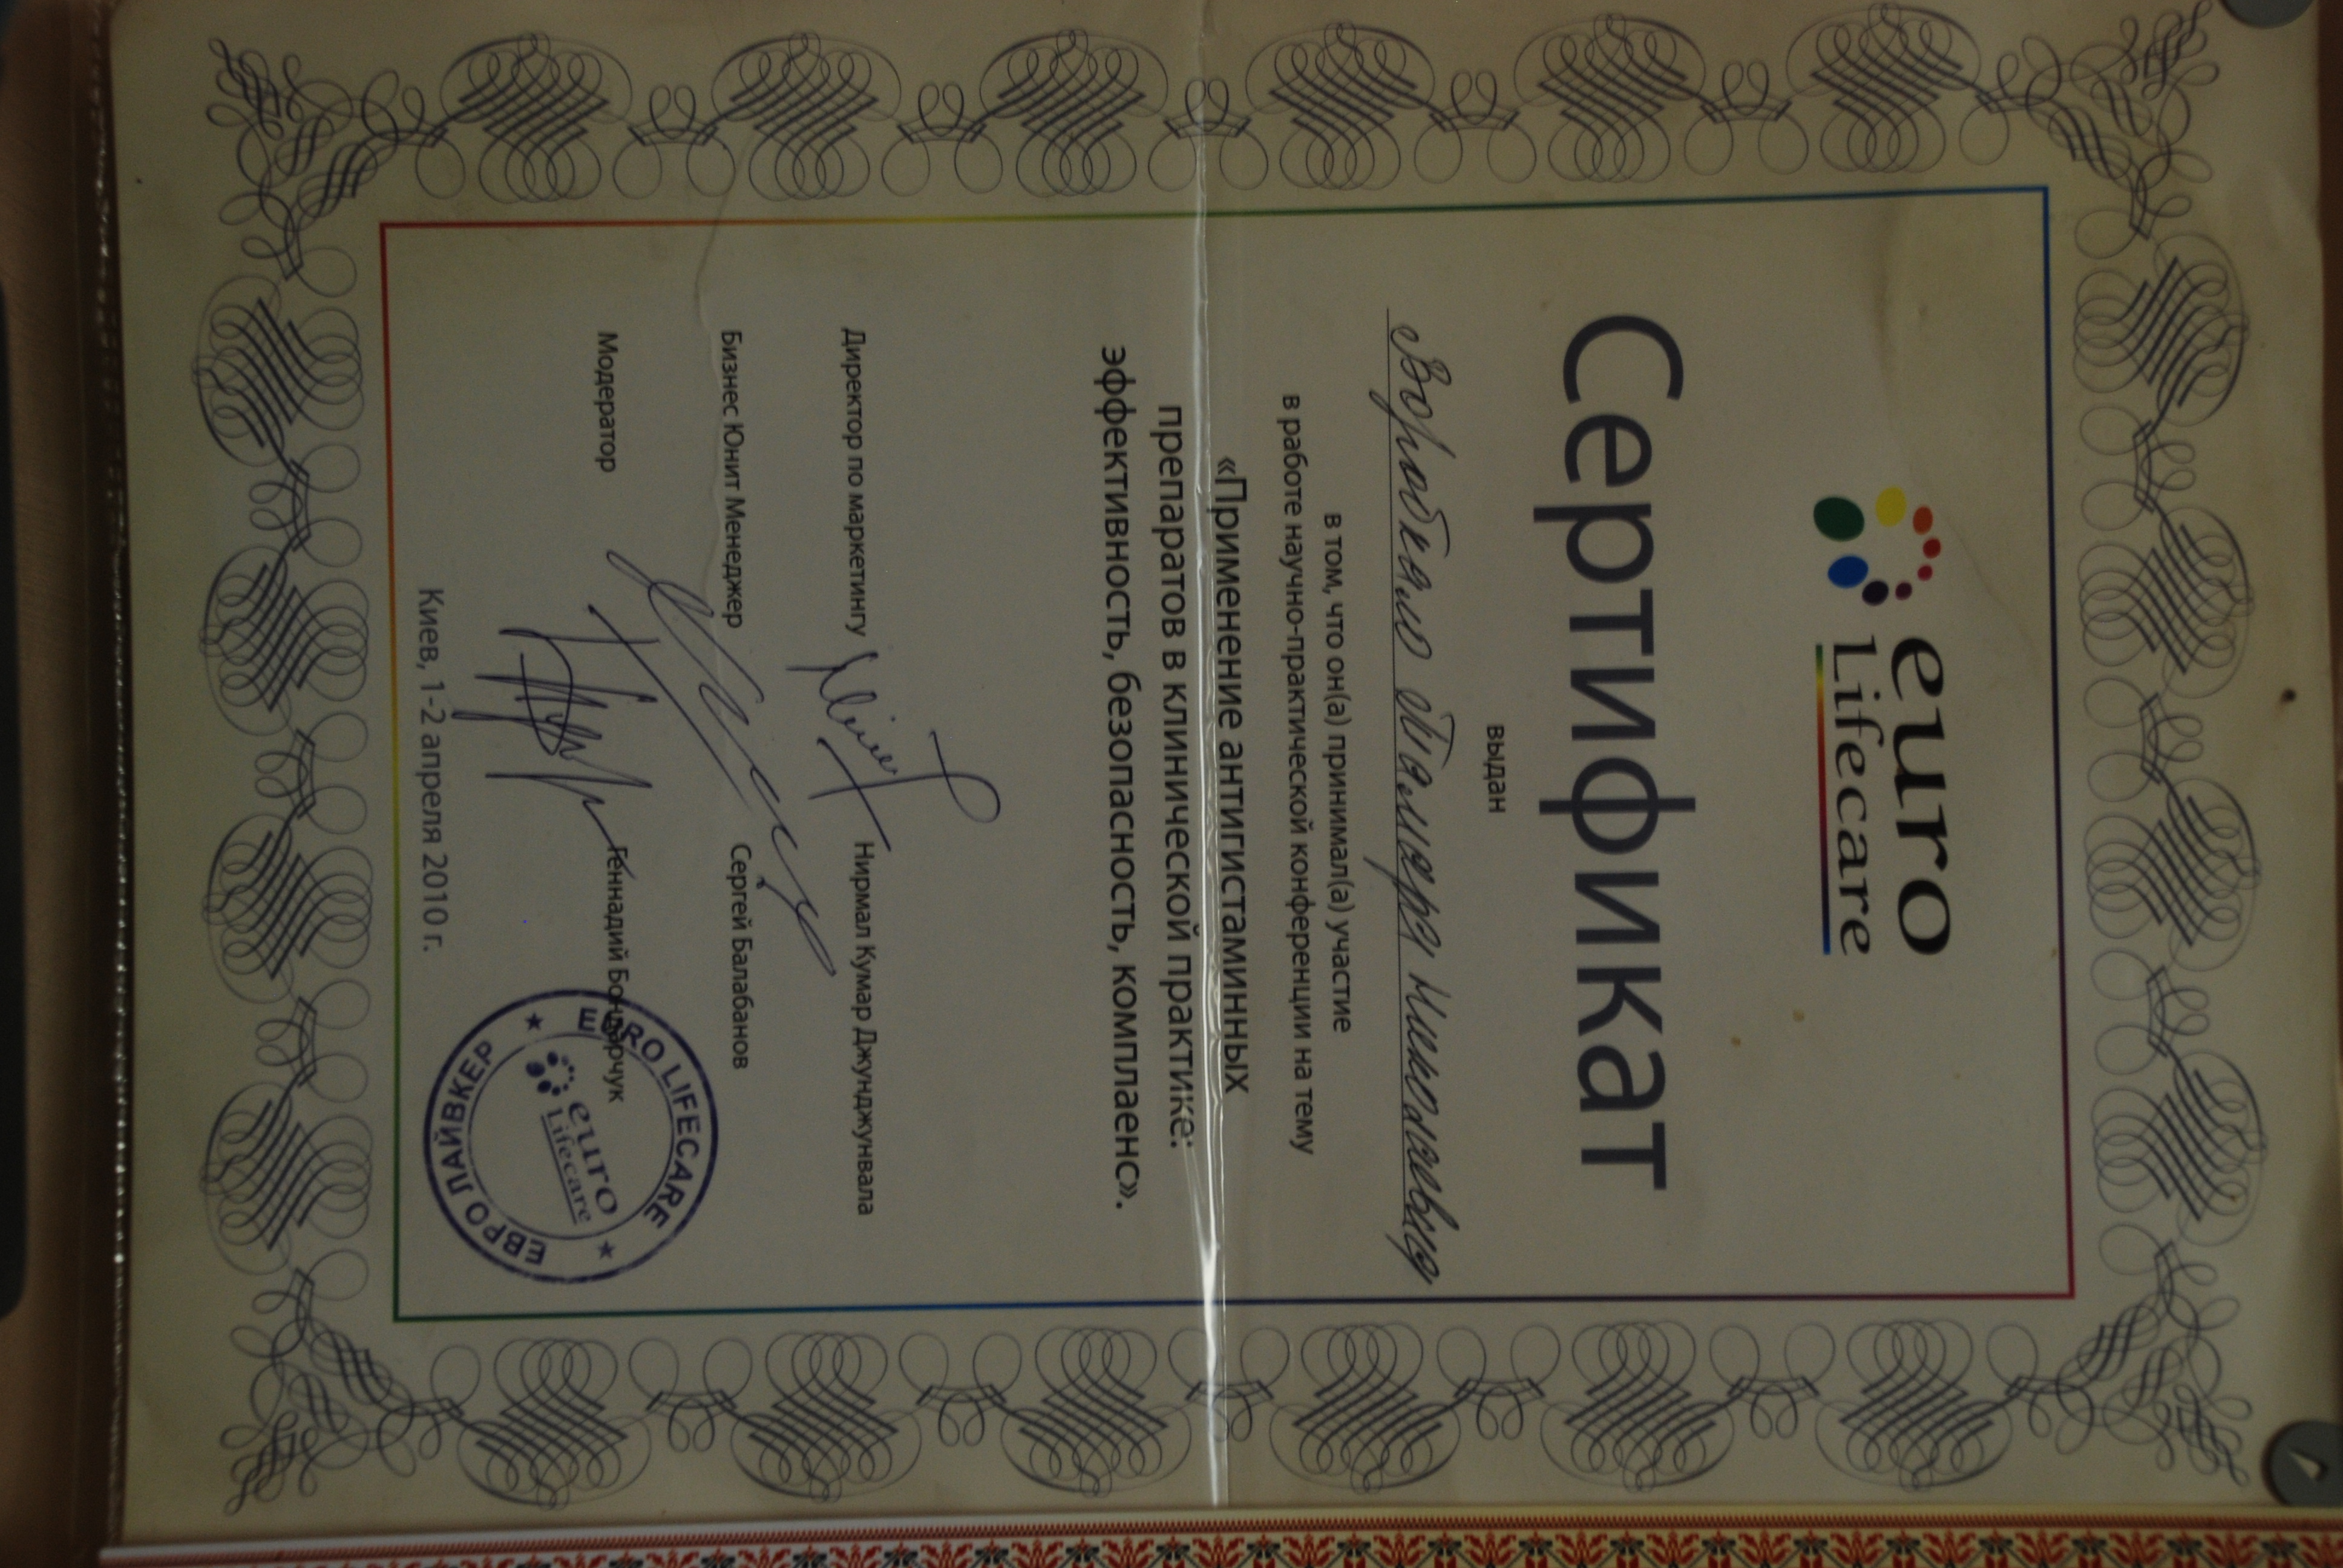 euro
Lifecare
Сертификат
выдан
Воробкало Тамара Николаевна
в том, что он(а) принимал(а) участие
в работе научно-практической конференции на тему
«Применение антигистаминных
препаратов в клинической практике:
эффективность, безопасность, комплаенс».
Директор по маркетингу Нирмал Кумар Джунджунвала
Бизнес Юнит Менеджер Сергей Балабанов
Модератор Геннадий Бондарчук
EURO LIFECARE
euro
Lifecare
ЕВРО ЛАЙВКЕР
Киев, 1-2 апреля 2010 г.